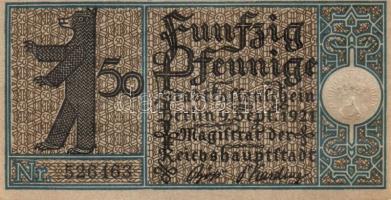 Funfzig
50 Pfennige
Stadtkassenschein
Berlin 9. Sept. 1921
Magistrat der
Reichshauptstadt
Nr. 526463